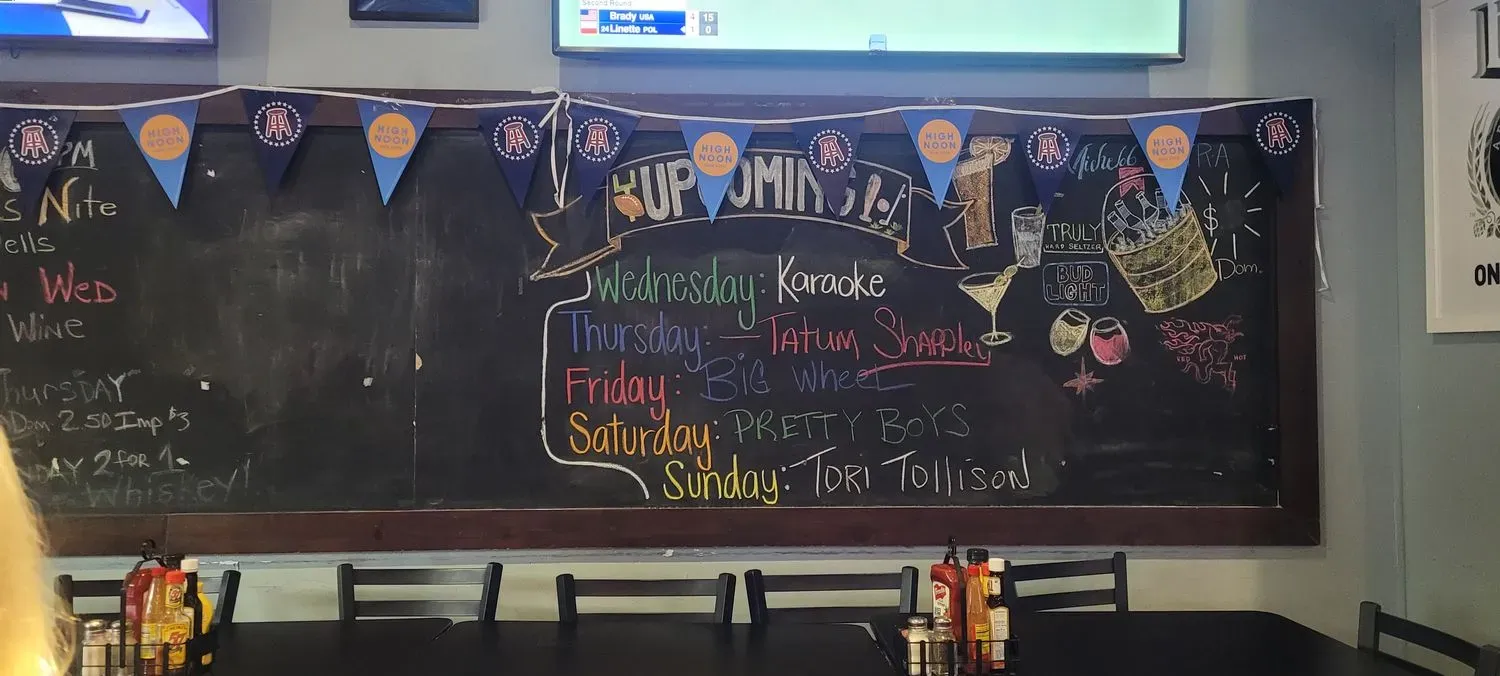 Second Round
Brady USA 4 15
24 Linette POL 1 0
HIGH NOON
HIGH NOON
HIGH NOON
HIGH NOON
HIGH NOON
PM
Nite
Wed
Wine
Thursday
Dom. 2.50 Imp $3
2 for 1
Whiskey!
UPCOMING
Wednesday: Karaoke
Thursday: — TATUM Shappley
Friday: BIG Wheel
Saturday: PRETTY BOYS
Sunday: TORI TOLLISON
TRULY
HARD SELTZER
BUD
LIGHT
$
Dom.
RED HOT
ON